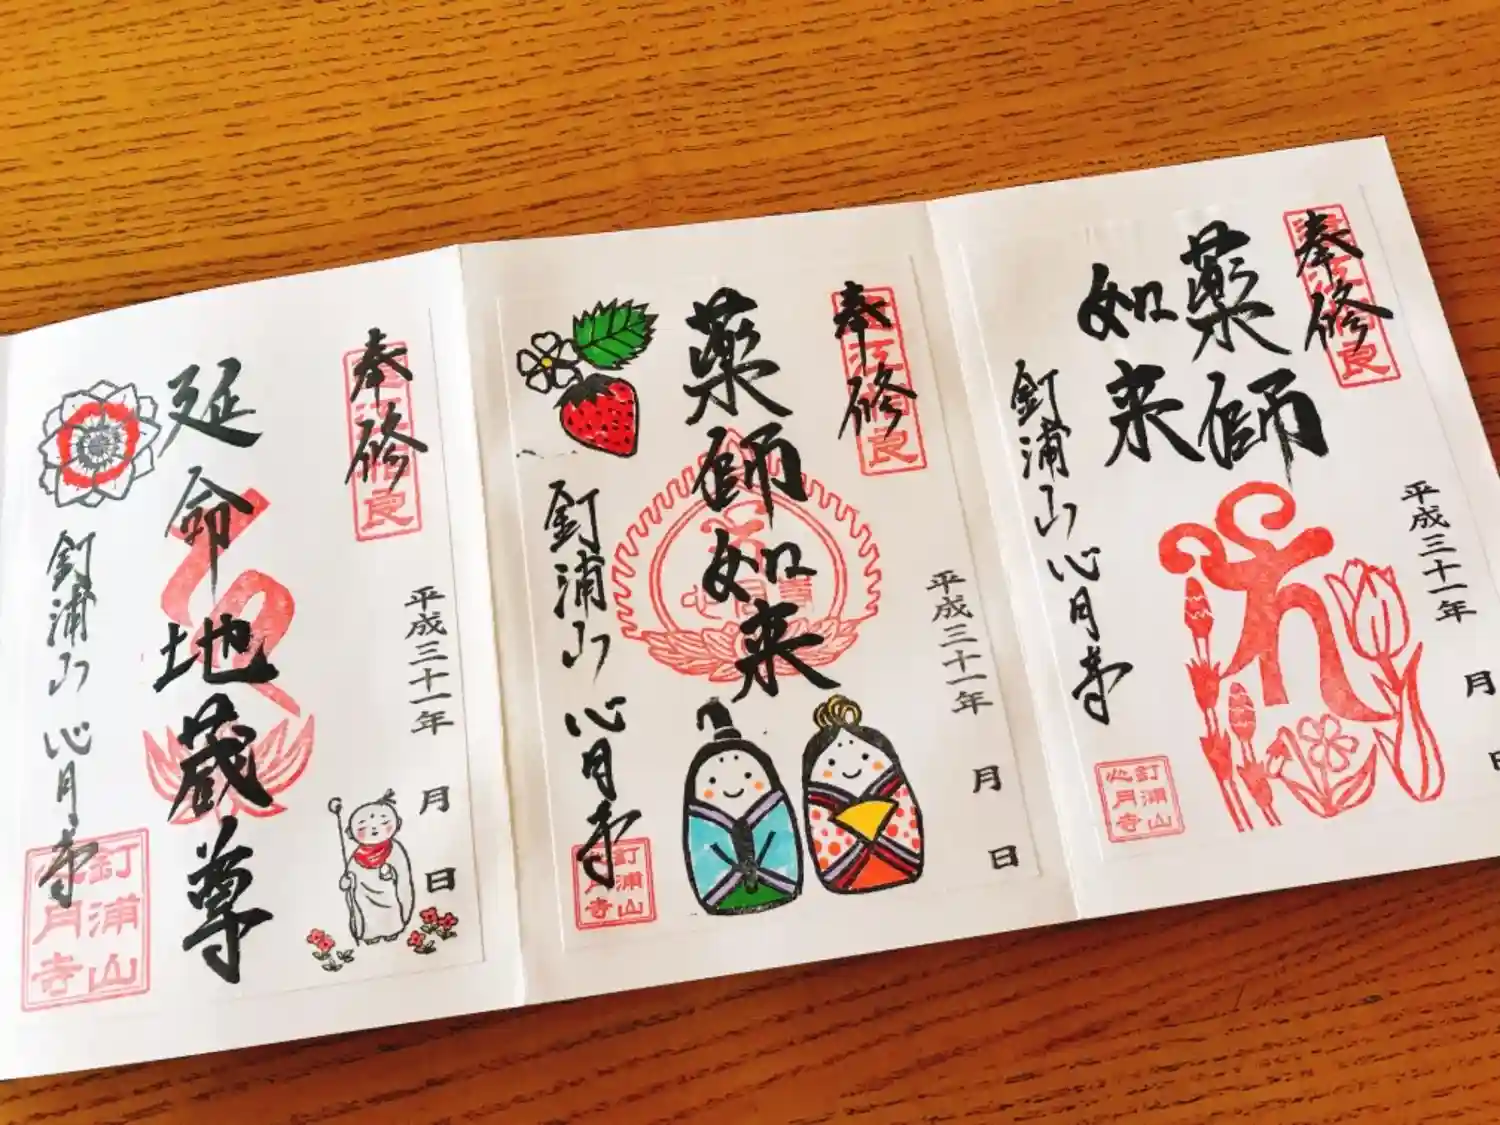 奉修
薬師
如来
平成三十一年 月 日
釘浦山 心月寺
釘浦山
心月寺
奉修
薬師如来
平成三十一年 月 日
釘浦山 心月寺
釘浦山
心月寺
奉修
延命地蔵尊
平成三十一年 月 日
釘浦山 心月寺
釘浦山
心月寺